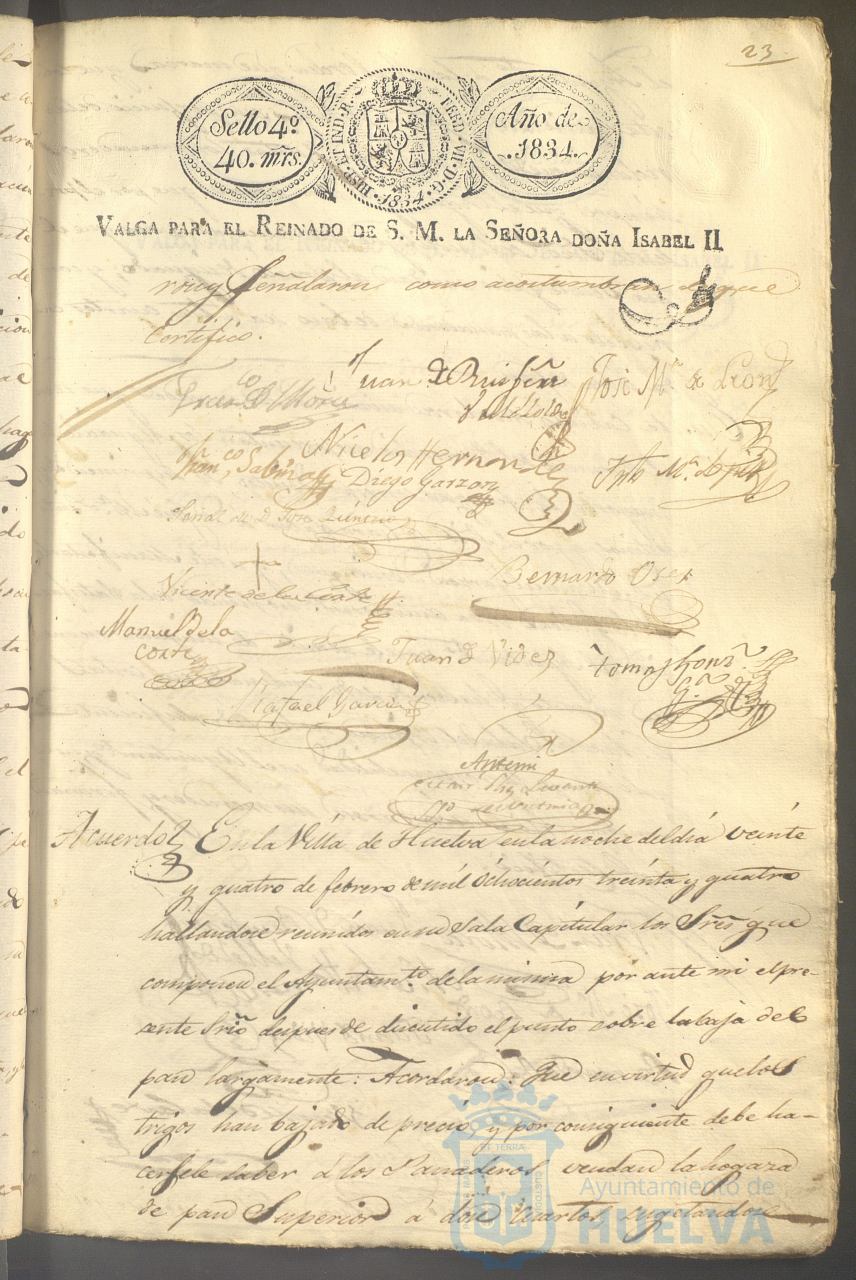 23
Sello 4º
40. mrs.
HISP. ET IND. R. FERD. VII. D. G. 1834
Año de
1834.
VALGA PARA EL REINADO DE S. M. LA SEÑORA DOÑA ISABEL II
y Señalaron como acostumbran de que
Certifico.
Juan de
José Mª de Leon
Franco Sabina
Nicolas Hernandez
Diego Garzon
Señal de D. Jose
Vicente de la Corte
Bernardo
Manuel de la
Corte
Juan de Videz
Tomas Gonz.
Rafael Garcia
Antemi
Acuerdo En la Villa de Huelva en la noche del dia veinte
y quatro de febrero de mil ochocientos treinta y quatro
hallandose reunidos en su Sala Capitular los Sres que
componen el Ayuntamto de la misma por ante mi el pre-
sente Srio despues de discutido el punto sobre la baja del
pan largamente: Acordaron: Que en virtud que los
trigos han bajado de precio, y por consiguiente debe ha-
cersele saber á los Panaderos vendan la hogaza
de pan Superior á doce cuartos sugetandose
Ayuntamiento de
HUELVA